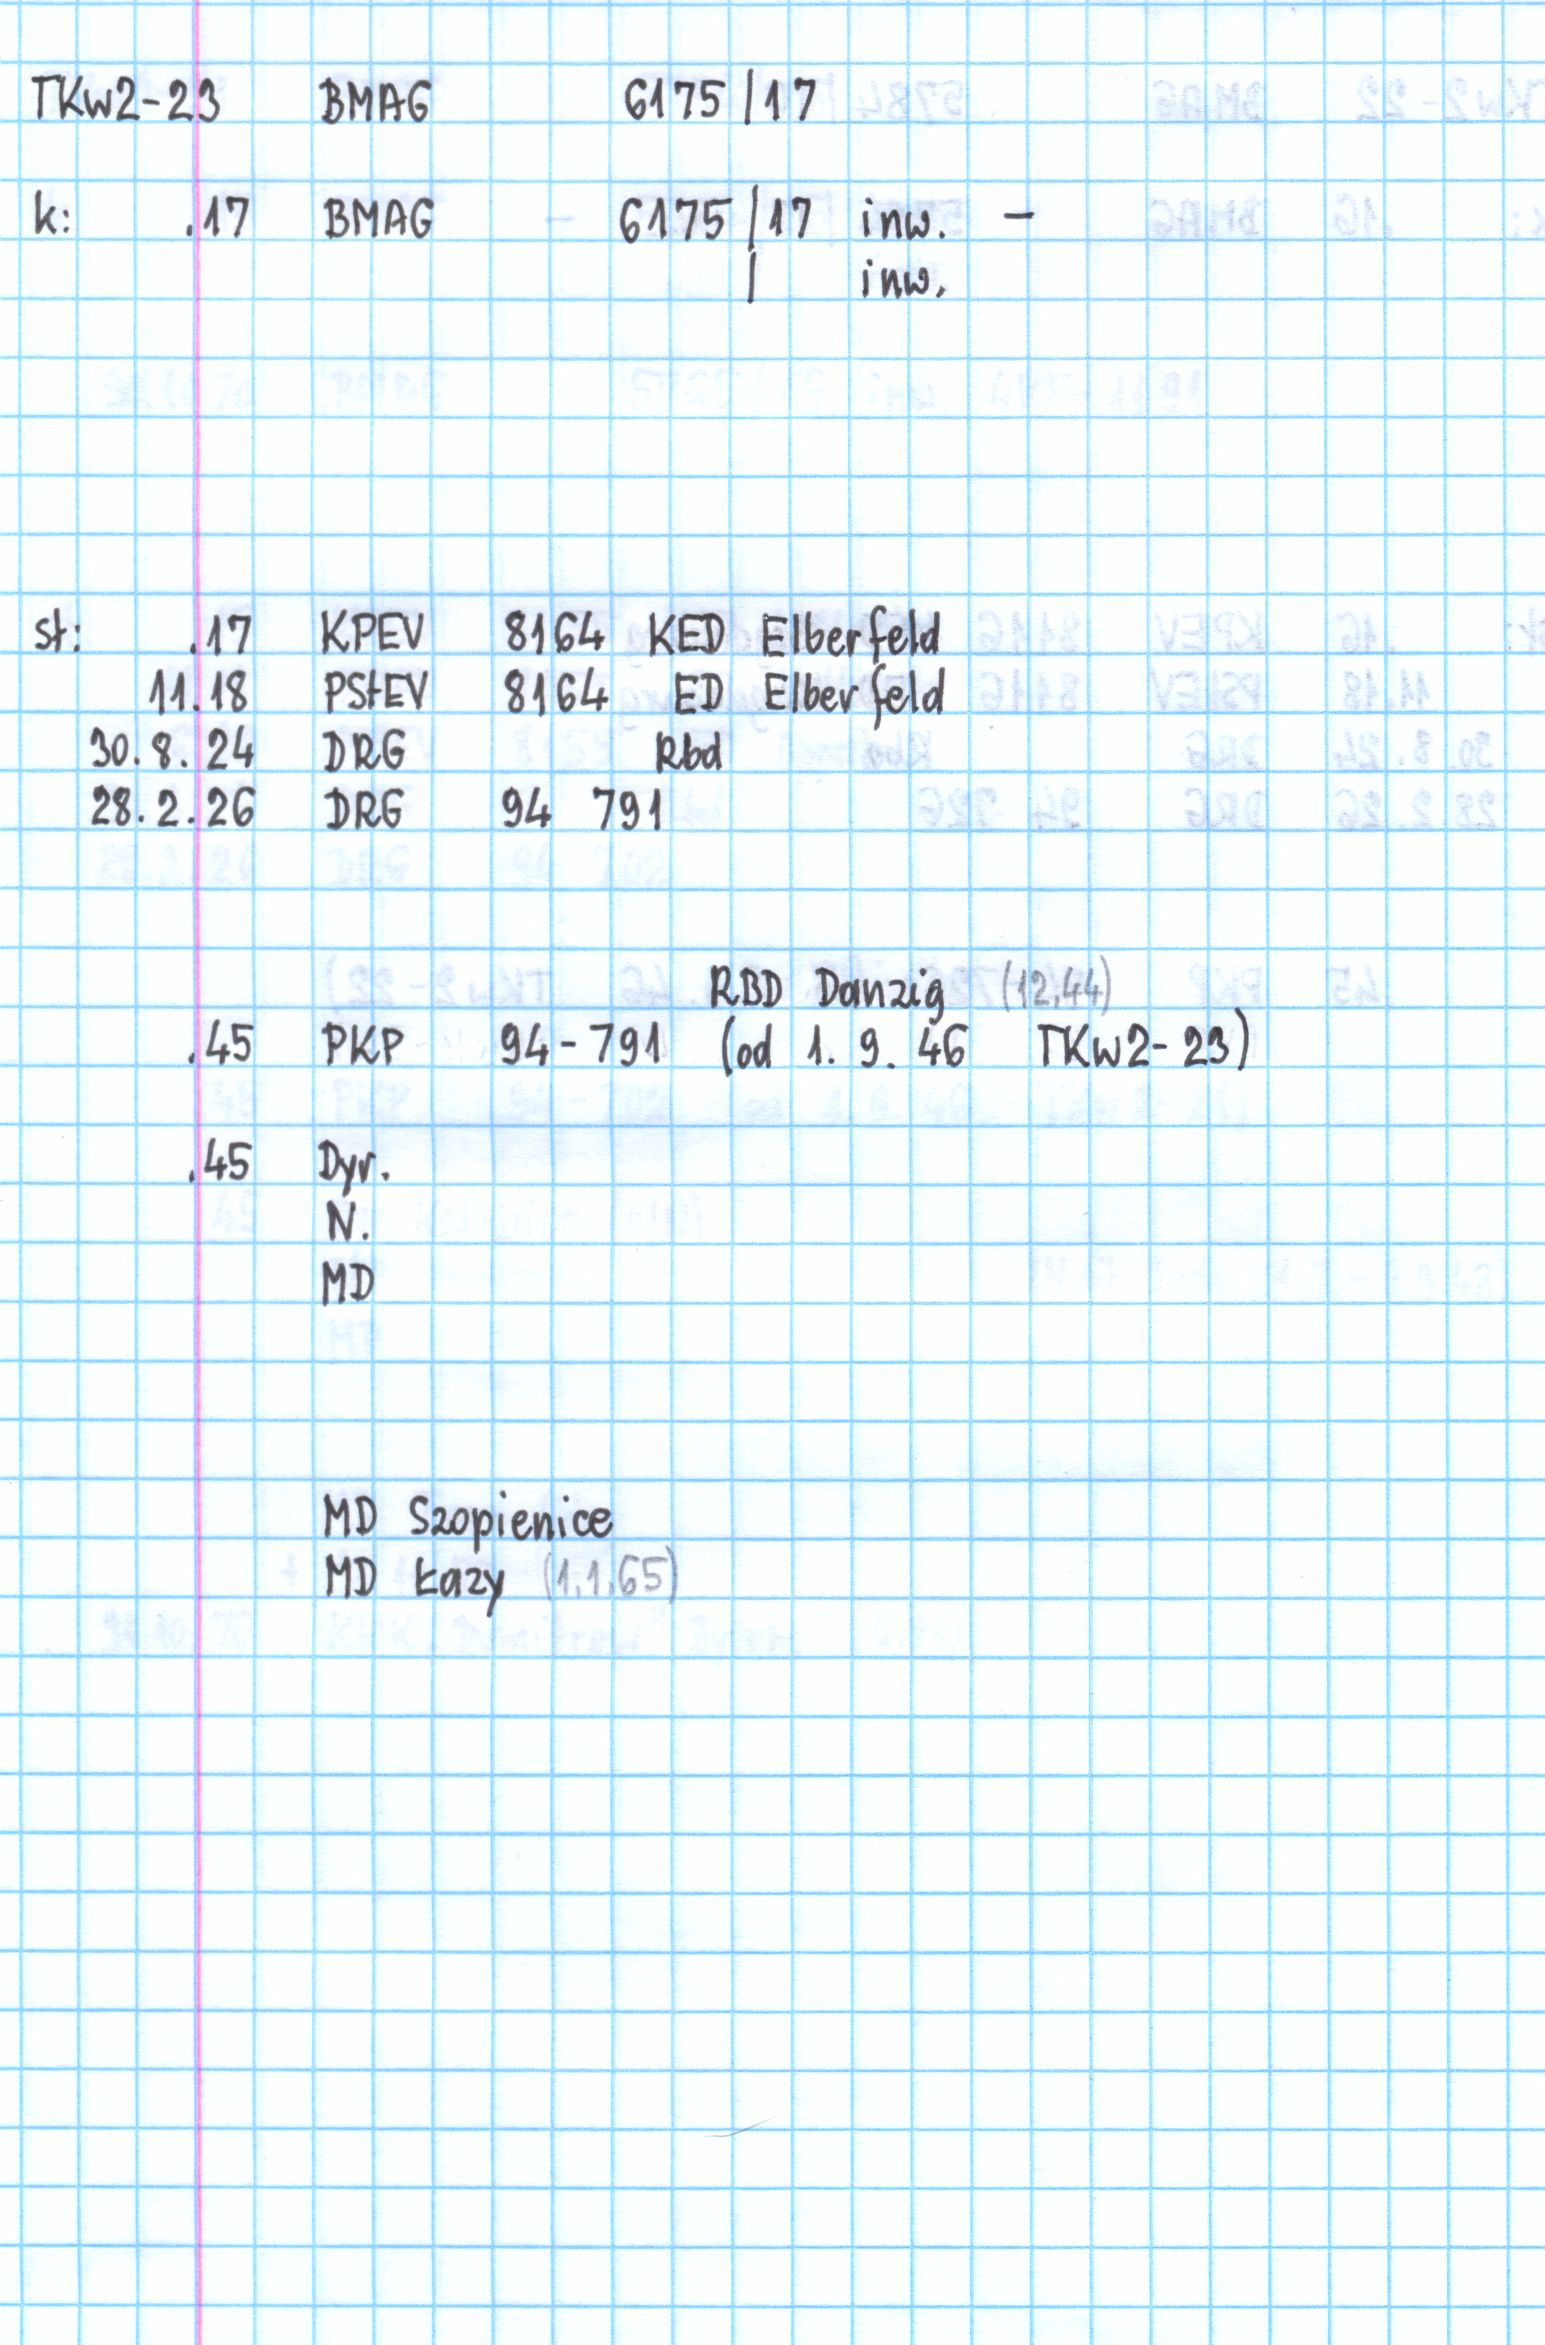 TKw2-23 BMAG 6175/17
k: .17 BMAG 6175/17 inw. -
/ inw.
st: .17 KPEV 8164 KED Elberfeld
11.18 PStEV 8164 ED Elberfeld
30.8.24 DRG Rbd
28.2.26 DRG 94 791
RBD Danzig (12.44)
.45 PKP 94-791 (od 1.9.46 TKw2-23)
.45 Dyr.
N.
MD
MD Szopienice
MD Łazy (1.1.65)